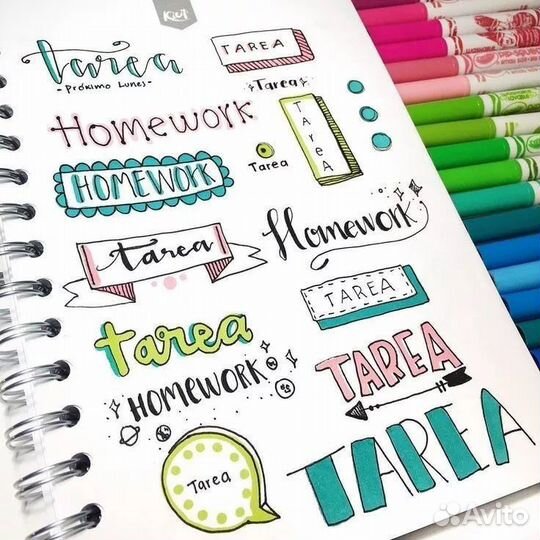 Kiut
tarea
- Próximo Lunes -
TAREA
Tarea
Homework
TAreA
HOMEWORK
Tarea
tarea
Homework
TAREA
tarea
TAREA
HOMEWORK
Tarea
TAREA
Avito